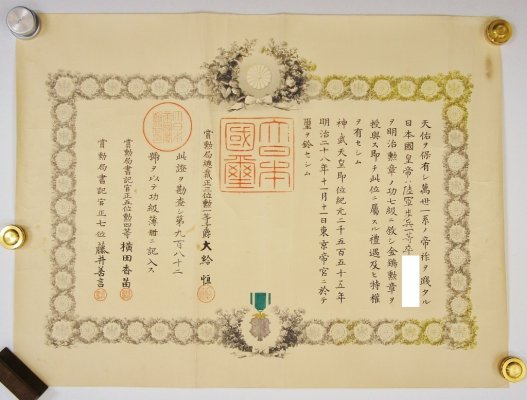 天佑ヲ保有シ萬世一系ノ帝祚ヲ踐タル
日本國皇帝ハ陸軍歩兵一等卒
ヲ明治勲章ノ功七級ニ敍シ金鵄勲章ヲ
授與ス即チ此位ニ屬スル禮遇及ヒ特權
ヲ有セシム
神武天皇即位紀元二千五百五十五年
明治二十八年十一月十一日東京帝宮ニ於テ
璽ヲ鈐セシム
大日本
國璽
賞勲局總裁正三位勲一等子爵大給恒
此證ヲ勘査シ第九百八十二
號ヲ以テ功級簿冊ニ記入ス
賞勲局書記官正五位勲四等横田香苗
賞勲局書記官正七位藤井善言